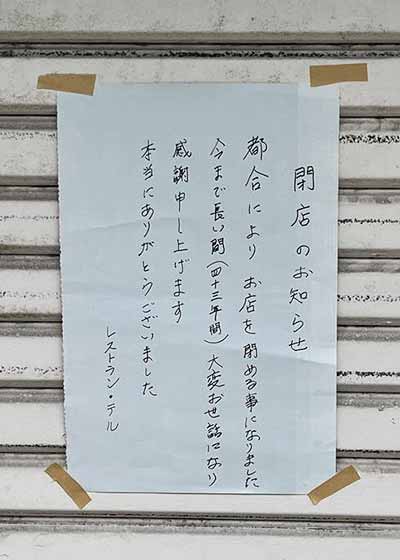 閉店のお知らせ
都合により お店を閉める事になりました
今まで長い間(四十三年間)大変お世話になり
感謝申し上げます
本当にありがとうございました
レストラン・テル